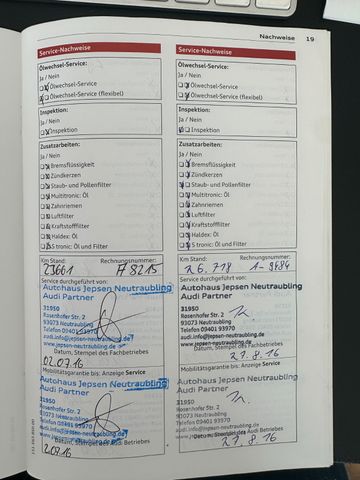 Nachweise 19
Service-Nachweise
Ölwechsel-Service:
Ja / Nein
Ölwechsel-Service
Ölwechsel-Service (flexibel)
Inspektion:
Ja / Nein
Inspektion
Zusatzarbeiten:
Ja / Nein
Bremsflüssigkeit
Zündkerzen
Staub- und Pollenfilter
Multitronic: Öl
Zahnriemen
Luftfilter
Kraftstofffilter
Haldex: Öl
S tronic: Öl und Filter
Km Stand: Rechnungsnummer:
23661 A 8215
Service durchgeführt von:
Autohaus Jepsen Neutraubling
Audi Partner
31950
Rosenhofer Str. 2
93073 Neutraubling
Telefon 09401 93970
audi.info@jepsen-neutraubling.de
www.jepsen-neutraubling.de
Datum, Stempel des Fachbetriebes
02.07.16
Mobilitätsgarantie bis: Anzeige Service
Autohaus Jepsen Neutraubling
Audi Partner
31950
Rosenhofer Str. 2
93073 Neutraubling
Telefon 09401 93970
audi.info@jepsen-neutraubling.de
www.jepsen-neutraubling.de
Datum, Stempel des Audi Betriebes
2.07.16
Service-Nachweise
Ölwechsel-Service:
Ja / Nein
Ölwechsel-Service
Ölwechsel-Service (flexibel)
Inspektion:
Ja / Nein
Inspektion
Zusatzarbeiten:
Ja / Nein
Bremsflüssigkeit
Zündkerzen
Staub- und Pollenfilter
Multitronic: Öl
Zahnriemen
Luftfilter
Kraftstofffilter
Haldex: Öl
S tronic: Öl und Filter
Km Stand: Rechnungsnummer:
26.718 A-9684
Service durchgeführt von:
Autohaus Jepsen Neutraubling
Audi Partner
31950
Rosenhofer Str. 2
93073 Neutraubling
Telefon 09401 93970
audi.info@jepsen-neutraubling.de
www.jepsen-neutraubling.de
Datum, Stempel des Fachbetriebes
Mobilitätsgarantie bis: Anzeige Service
Autohaus Jepsen Neutraubling
Audi Partner
31950
Rosenhofer Str. 2
93073 Neutraubling
Telefon 09401 93970
audi.info@jepsen-neutraubling.de
www.jepsen-neutraubling.de
Datum, Stempel des Audi Betriebes